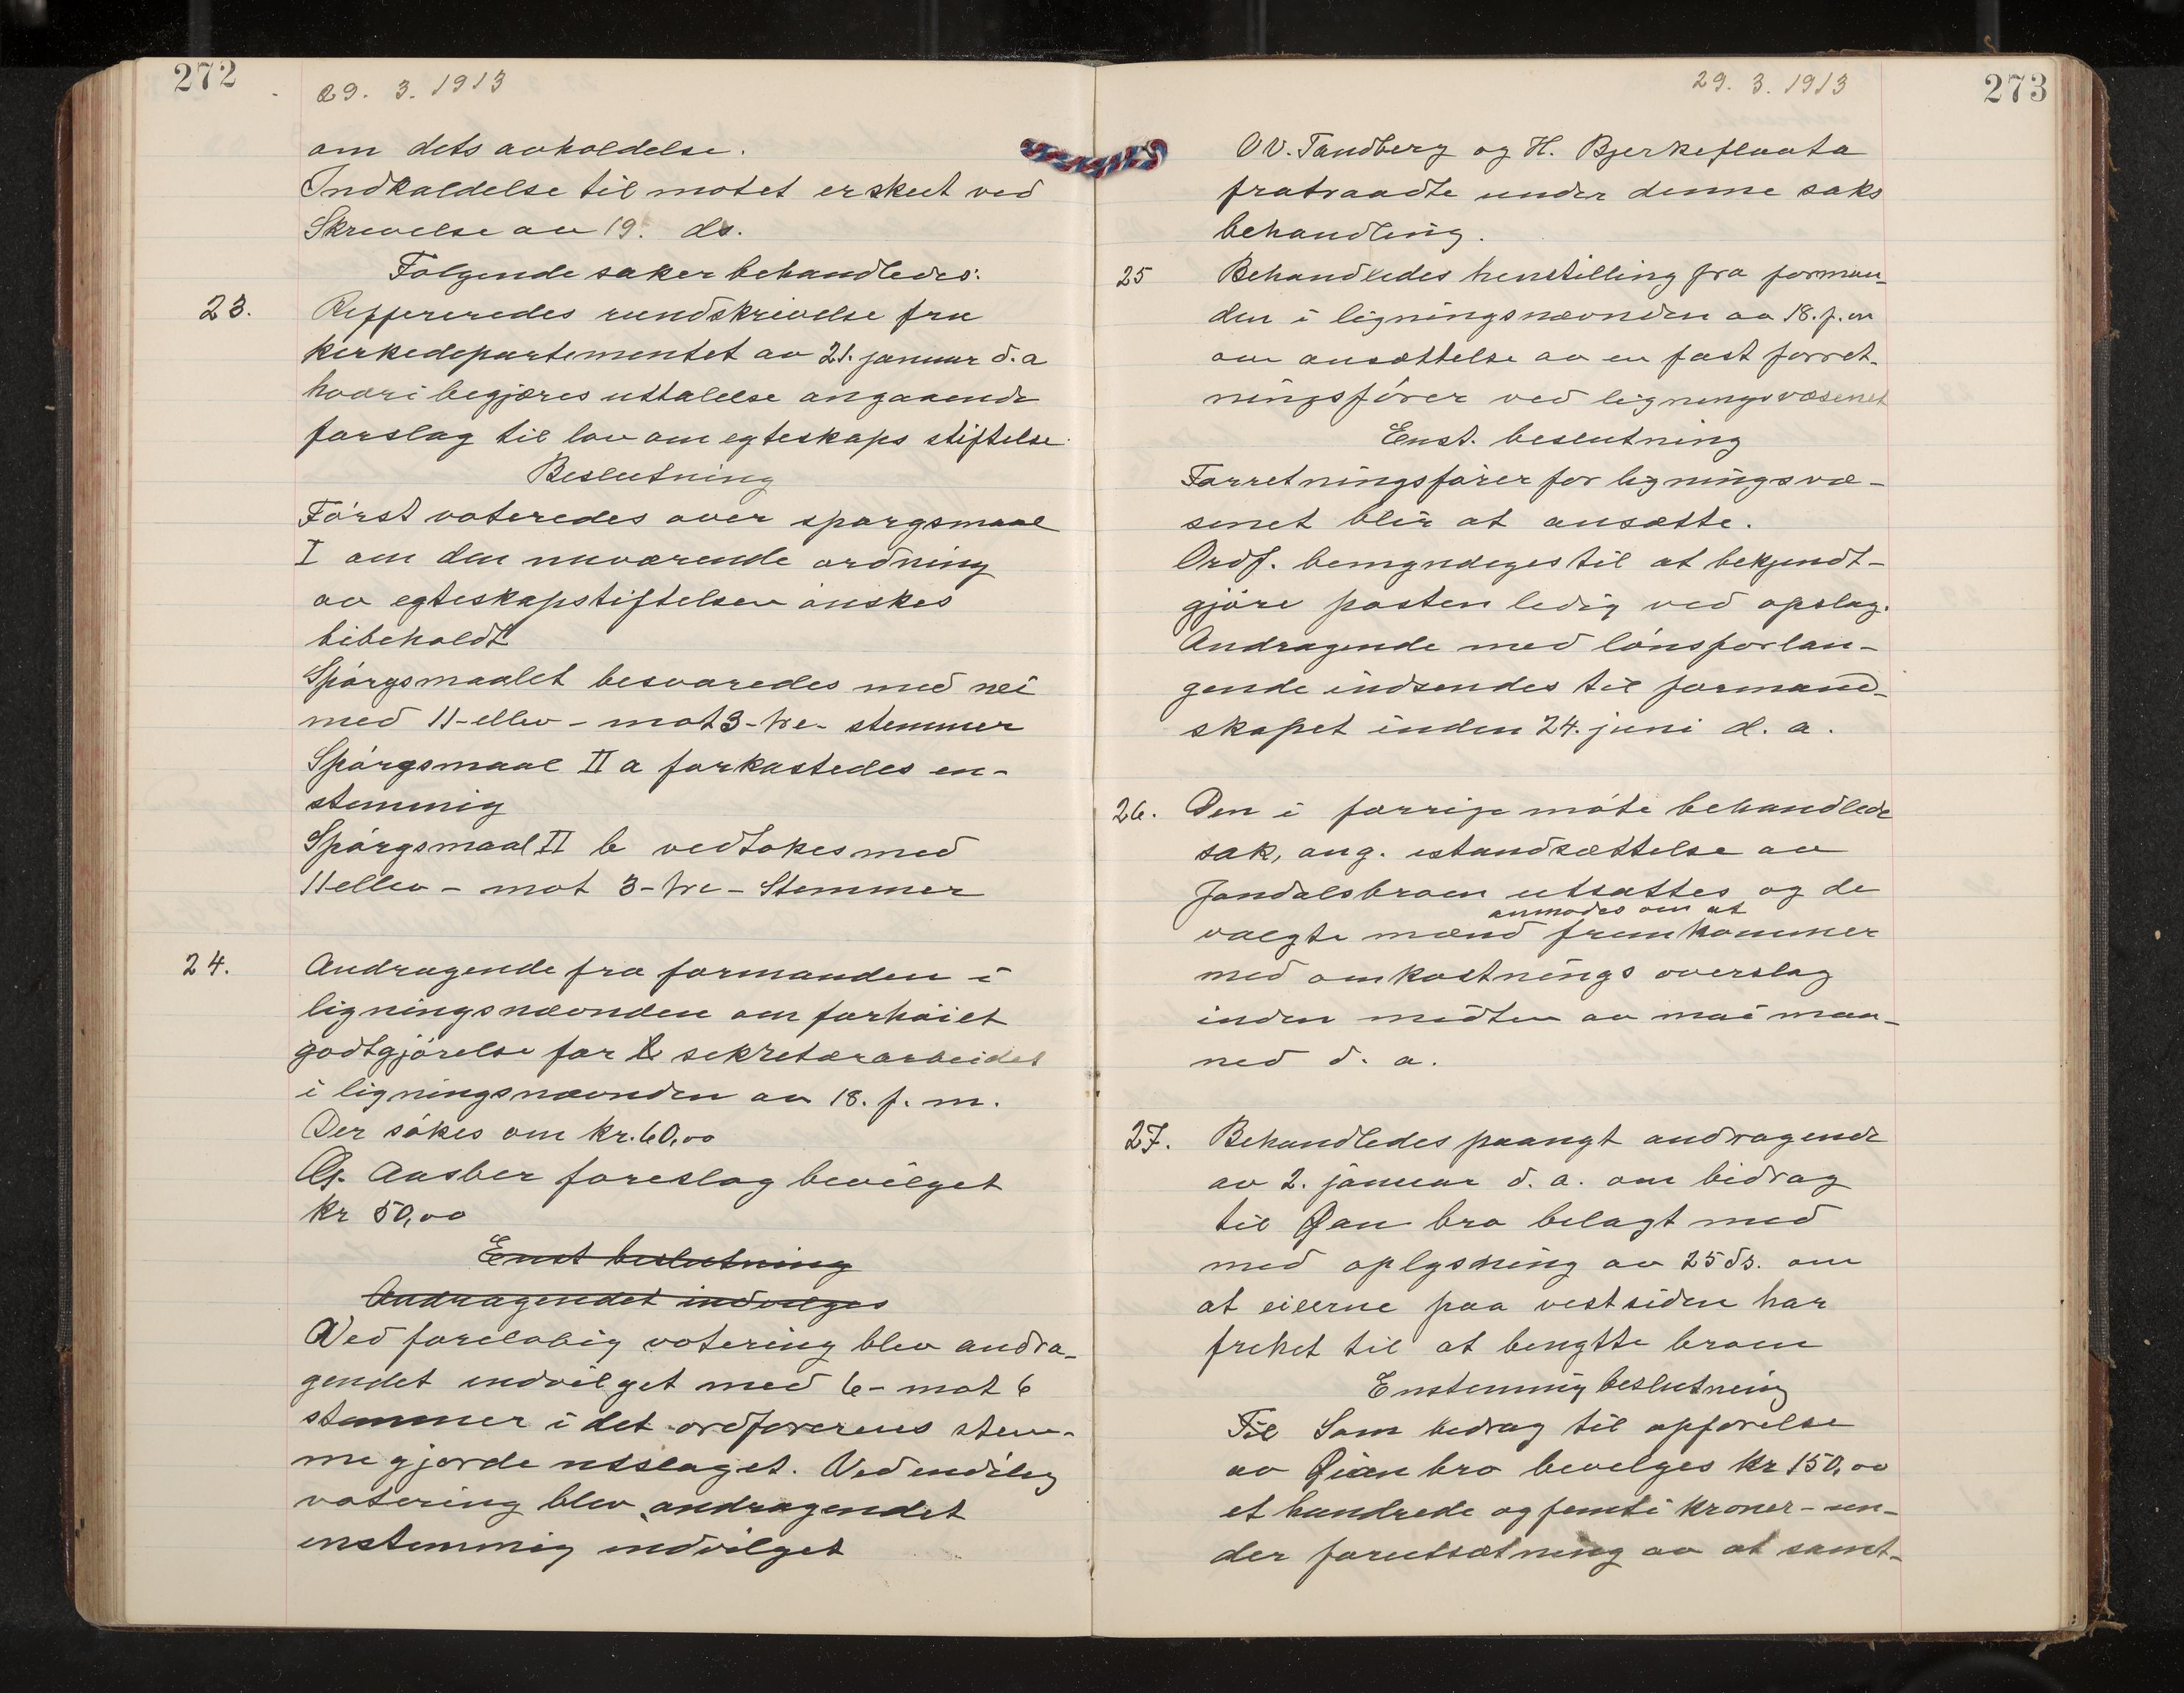 272
29. 3. 1913
om dets avholdelse.
Indkaldelse til motet er skeet ved
Skrivelse av 19. ds.
Følgende saker behandledes:
23. Reffereredes rundskrivelse fra
kirkedepartementet av 21. januar d. a
hvori begjæres uttalelse angaaende
forslag til lov om egteskaps stiftelse.
Beslutning
Først voteredes over spørgsmaal
I om den nuværende ordning
av egteskapstiftelsen ønskes
bibeholdt
Spørgsmaalet besvaredes med nei
med 11-ellev- mot 3-tre- stemmer
Spørgsmaal II a forkastedes en-
stemmig
Spørgsmaal II b vedtokes med
11 ellev - mot 3-tre- Stemmer
24. Andragende fra formanden i
ligningsnævnden om forhøiet
godtgjørelse for sekretærarbeidet
i ligningsnævnden av 18. f. m.
Der søkes om kr. 60,00
G. Aasber foreslog bevilget
kr 50,00
Enst beslutning
Andragendet indvilges
Ved foreløbig votering blev andra-
gendet indvilget med 6- mot 6
stemmer i det ordførerens stem-
me gjorde utslaget. Ved endelig
votering blev andragendet
enstemmig indvilget
29. 3. 1913
273
O V. Tandberg og H. Bjerkeflaata
fratraadte under denne saks
behandling.
25 Behandledes henstilling fra forman-
den i ligningsnævnden av 18. f. m
om ansættelse av en fast forret-
ningsfører ved ligningsvæsenet
Enst. beslutning
Forretningsfører for ligningsvæ-
senet blir at ansætte.
Ordf. bemyndiges til at bekjendt-
gjøre posten ledig ved opslag.
Andragende med lønsforlan-
gende indsendes til formand-
skapet inden 24. juni d. a.
26. Den i forrige møte behandlede
sak, ang. istandsættelse av
Jondalsbroen utsattes og de
anmodes om at
valgte mænd fremkommer
med omkostnings overslag
inden midten av mai maa-
ned d. a.
27. Behandledes paangt andragende
av 2. januar d. a. om bidrag
til bro belagt med
med oplysning av 25 ds. om
at eierne paa vestsiden har
frehet til at benytte broen
Enstemmig beslutning
Til Som bidrag til opførelse
av bro bevilges kr 150,00
et hundrede og femti kroner - un-
der forutsætning av at samt-